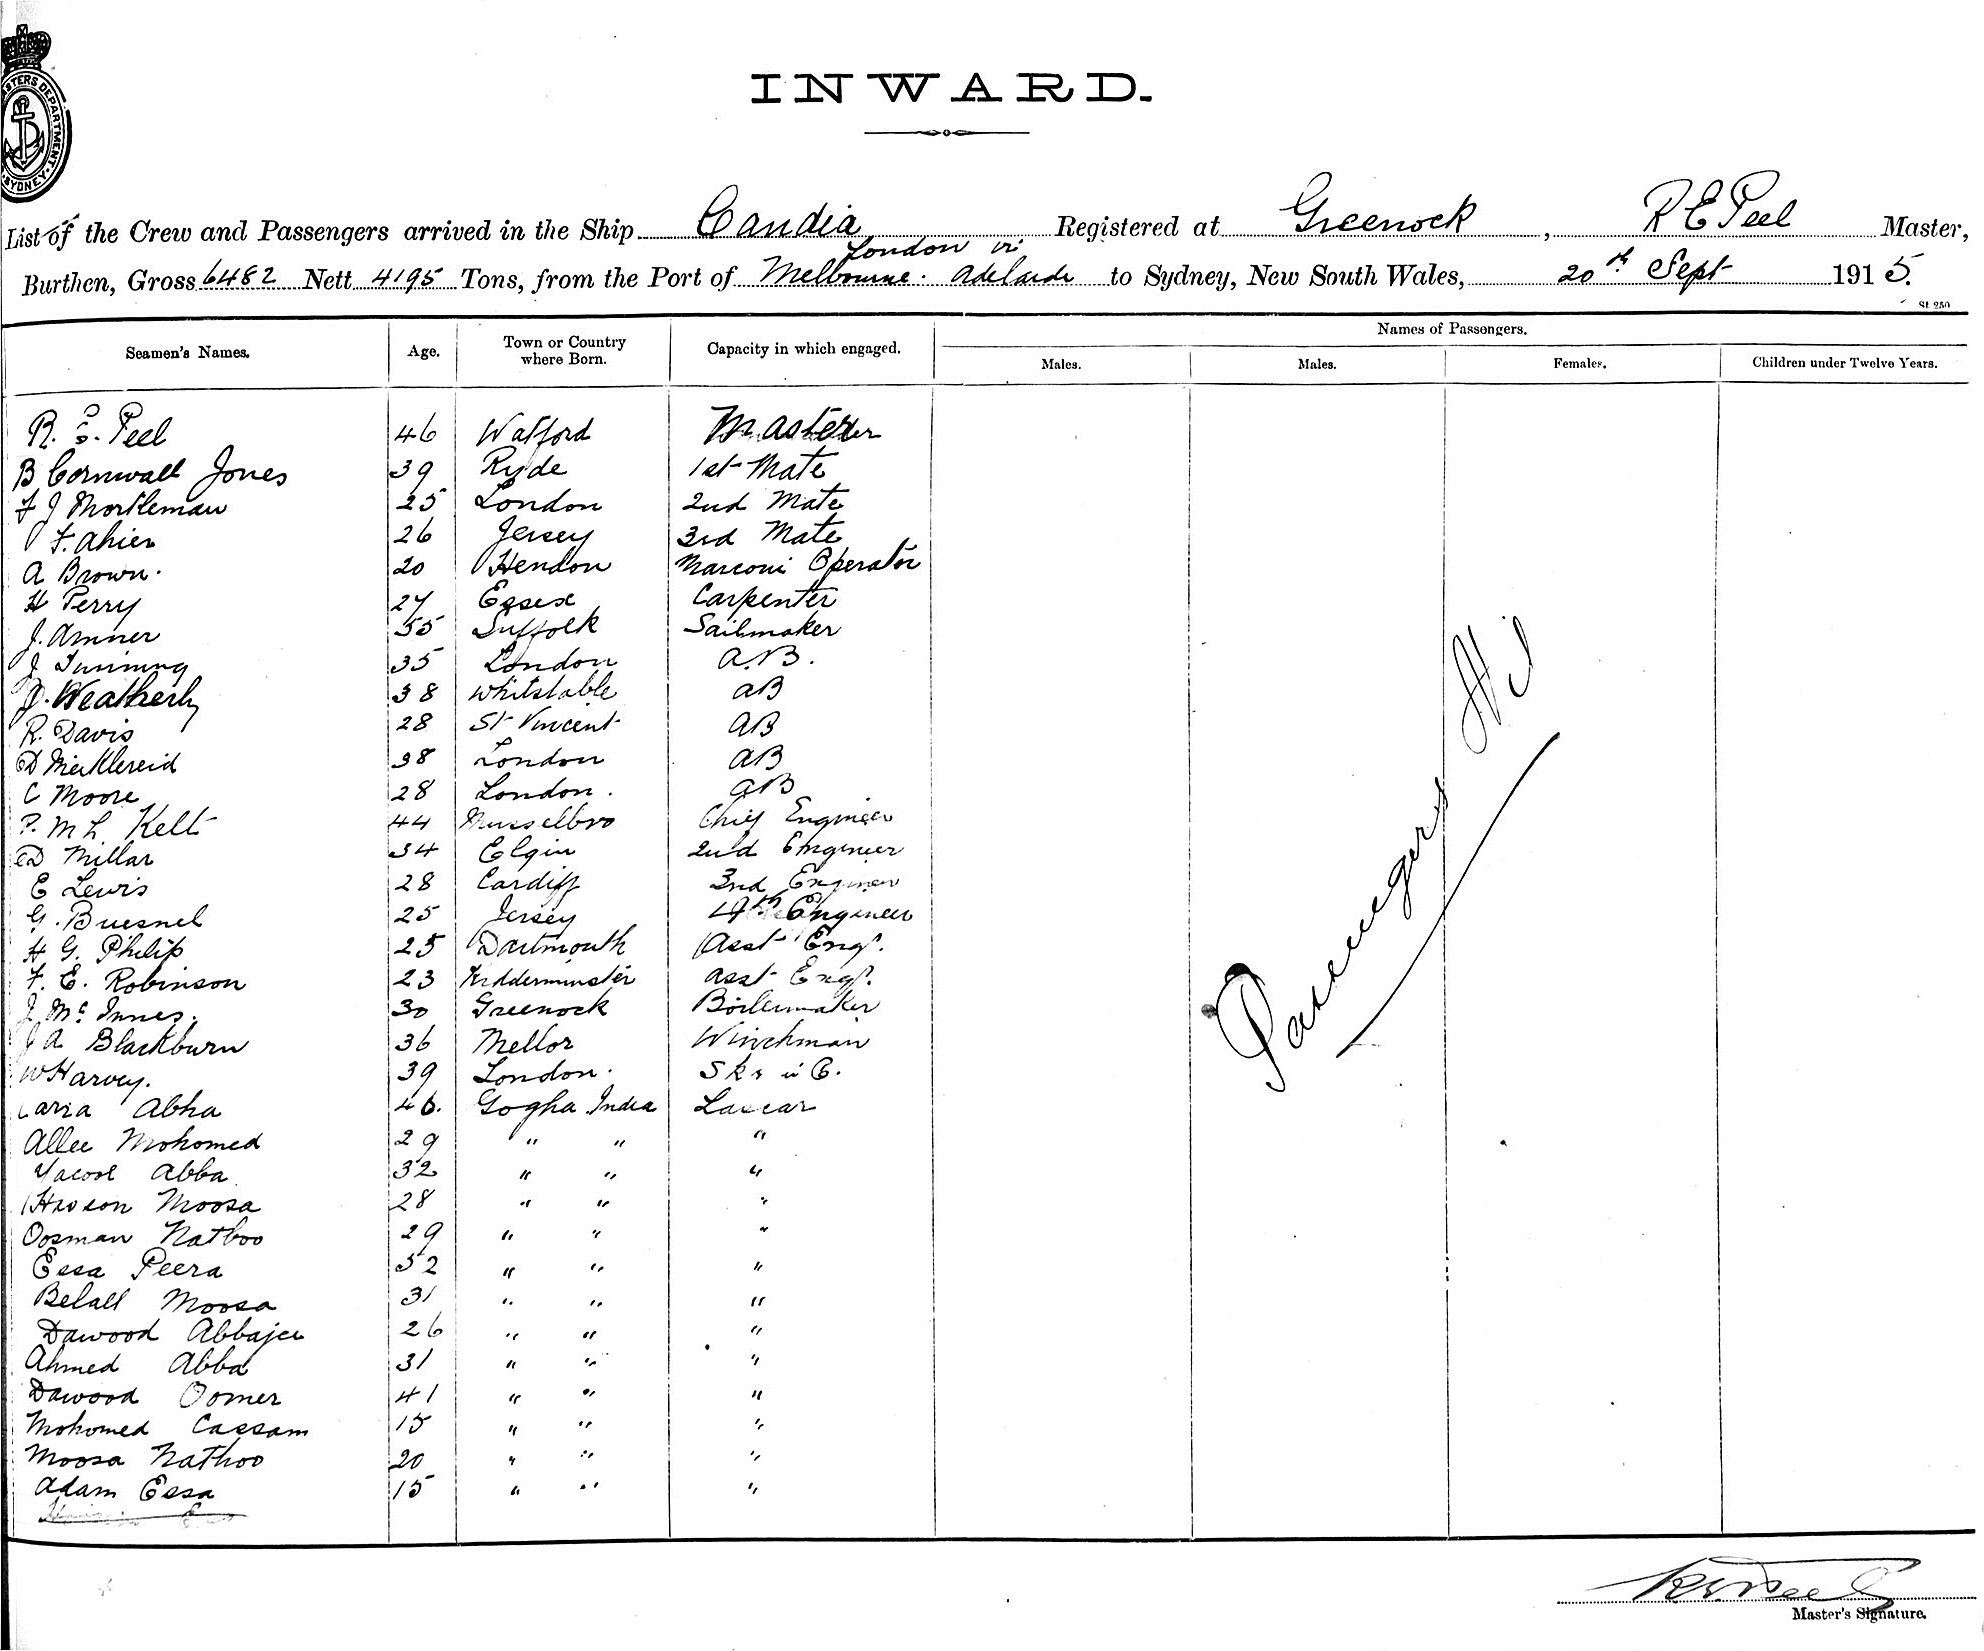 MASTERS DEPARTMENT. SYDNEY.
INWARD.
List of the Crew and Passengers arrived in the Ship Candia Registered at Greenock, R E Peel Master,
London via
Burthen, Gross 6482 Nett 4195 Tons, from the Port of Melbourne. Adelaide to Sydney, New South Wales, 20th Sept 1915.
St 250
Seamen's Names. Age. Town or Country where Born. Capacity in which engaged. Names of Passengers.
Males. Males. Females. Children under Twelve Years.
R. E. Peel 46 Watford Master
B Cornwall Jones 39 Ryde 1st Mate
F J Mortleman 25 London 2nd Mate
F. Ahier 26 Jersey 3rd Mate
A Brown. 20 Hendon Marconi Operator
H Perry 27 Essex Carpenter
J. Amner 55 Suffolk Sailmaker
J 35 London A.B.
J. Weatherly 38 Whitstable AB
R. Davis 28 St Vincent AB
D Micklereid 38 London AB
C Moore 28 London. AB
P. M L Kelt 44 Musselbro Chief Engineer
D Millar 34 Elgin 2nd Engineer
E Lewis 28 Cardiff 3rd Engineer
G. Buesnel 25 Jersey 4th Engineer
H G. Philip 25 Dartmouth Asst Engr.
F. E. Robinson 23 Kidderminster Asst Engr.
J McInnes. 30 Greenock Boilermaker
J A Blackburn 36 Mellor Winchman
W Harvey. 39 London. Skr i C.
Abha 46. Gogha India Lascar
Allee Mohomed 29 " " "
Yacoob Abba 32 " " "
Hasson Moosa 28 " " "
Oosman Nathoo 29 " " "
Essa Peera 52 " " "
Belall Moosa 31 " " "
Dawood Abbajee 26 " " "
Ahmed Abba 31 " " "
Dawood Oomer 41 " " "
Mohomed Cassam 15 " " "
Moosa Nathoo 20 " " "
Adam Essa 15 " " "
Passengers Nil
R E Peel
Master's Signature.